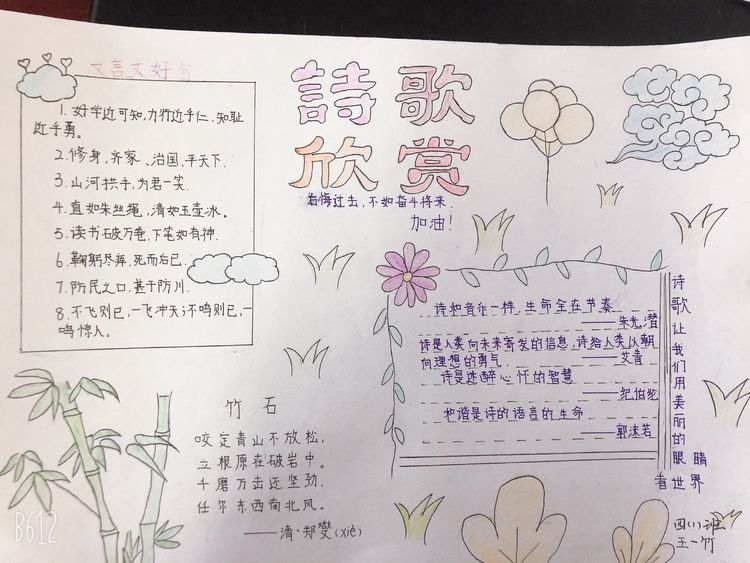 文言文好句
1. 好学近乎知,力行近乎仁,知耻
近乎勇。
2. 修身、齐家、治国、平天下.
3. 山河拱手,为君一笑.
4. 直如朱丝绳,清如玉壶冰。
5. 读书破万卷,下笔如有神.
6. 鞠躬尽瘁,死而后已.
7. 防民之口,甚于防川.
8. 不飞则已,一飞冲天;不鸣则已,一
鸣惊人.
詩歌
欣赏
后悔过去,不如奋斗将来.
加油!
诗和音乐一样,生命全在节奏
——朱光潜
诗是人类向未来寄发的信息,诗给人类以朝
向理想的勇气.——艾青
诗是迷醉心怀的智慧
——纪伯伦
和谐是诗的语言的生命
——郭沫若
诗歌让我们用美丽的眼睛
看世界
竹石
咬定青山不放松,
立根原在破岩中。
千磨万击还坚劲,
任尔东西南北风。
——清·郑燮(xiè)
四(1)班
王一竹
B612